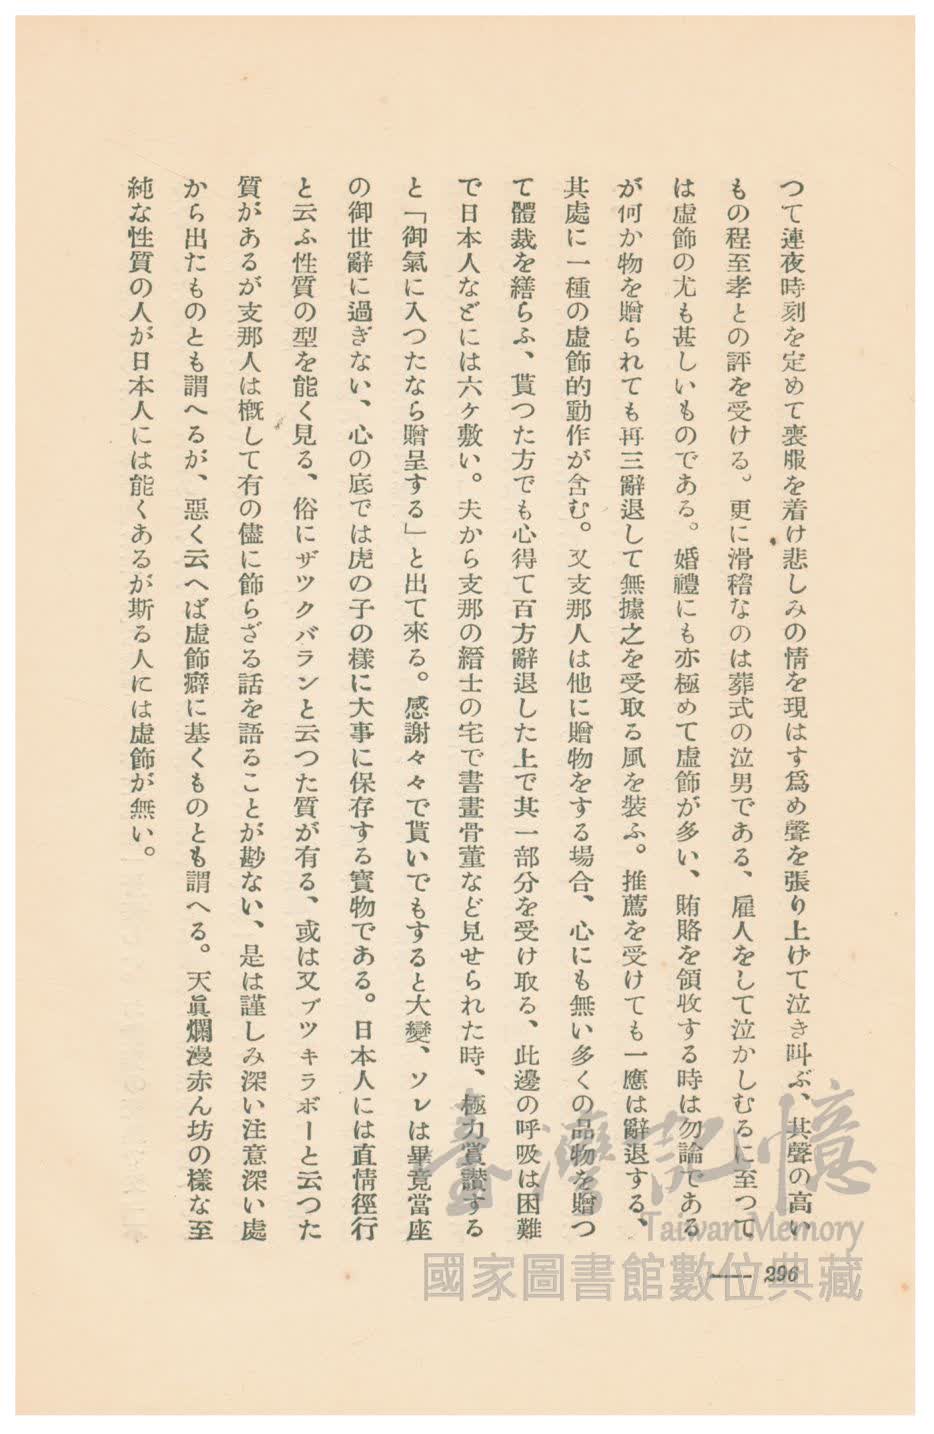 つて連夜時刻を定めて喪服を着け悲しみの情を現はす爲め聲を張り上げて泣き叫ぶ、其聲の高い
もの程至孝との評を受ける。更に滑稽なのは葬式の泣男である、雇人をして泣かしむるに至つて
は虛飾の尤も甚しいものである。婚禮にも亦極めて虛飾が多い、賄賂を領收する時は勿論である
が何か物を贈られても再三辭退して無據之を受取る風を裝ふ。推薦を受けても一應は辭退する、
其處に一種の虛飾的動作が含む。又支那人は他に贈物をする場合、心にも無い多くの品物を贈つ
て體裁を繕らふ、貰つた方でも心得て百方辭退した上で其一部分を受け取る、此邊の呼吸は困難
で日本人などには六ケ敷い。夫から支那の縉士の宅で書畫骨董など見せられた時、極力賞讃する
と「御氣に入つたなら贈呈する」と出て來る。感謝々々で貰いでもすると大變、ソレは畢竟當座
の御世辭に過ぎない、心の底では虎の子の樣に大事に保存する寶物である。日本人には直情徑行
と云ふ性質の型を能く見る、俗にザツクバランと云つた質が有る、或は又ブツキラボーと云つた
質があるが支那人は槪して有の儘に飾らざる話を語ることが尠ない、是は謹しみ深い注意深い處
から出たものとも謂へるが、惡く云へば虛飾癖に基くものとも謂へる。天眞爛漫赤ん坊の樣な至
純な性質の人が日本人には能くあるが斯る人には虛飾が無い。
296
臺灣記憶
Taiwan Memory
國家圖書館數位典藏